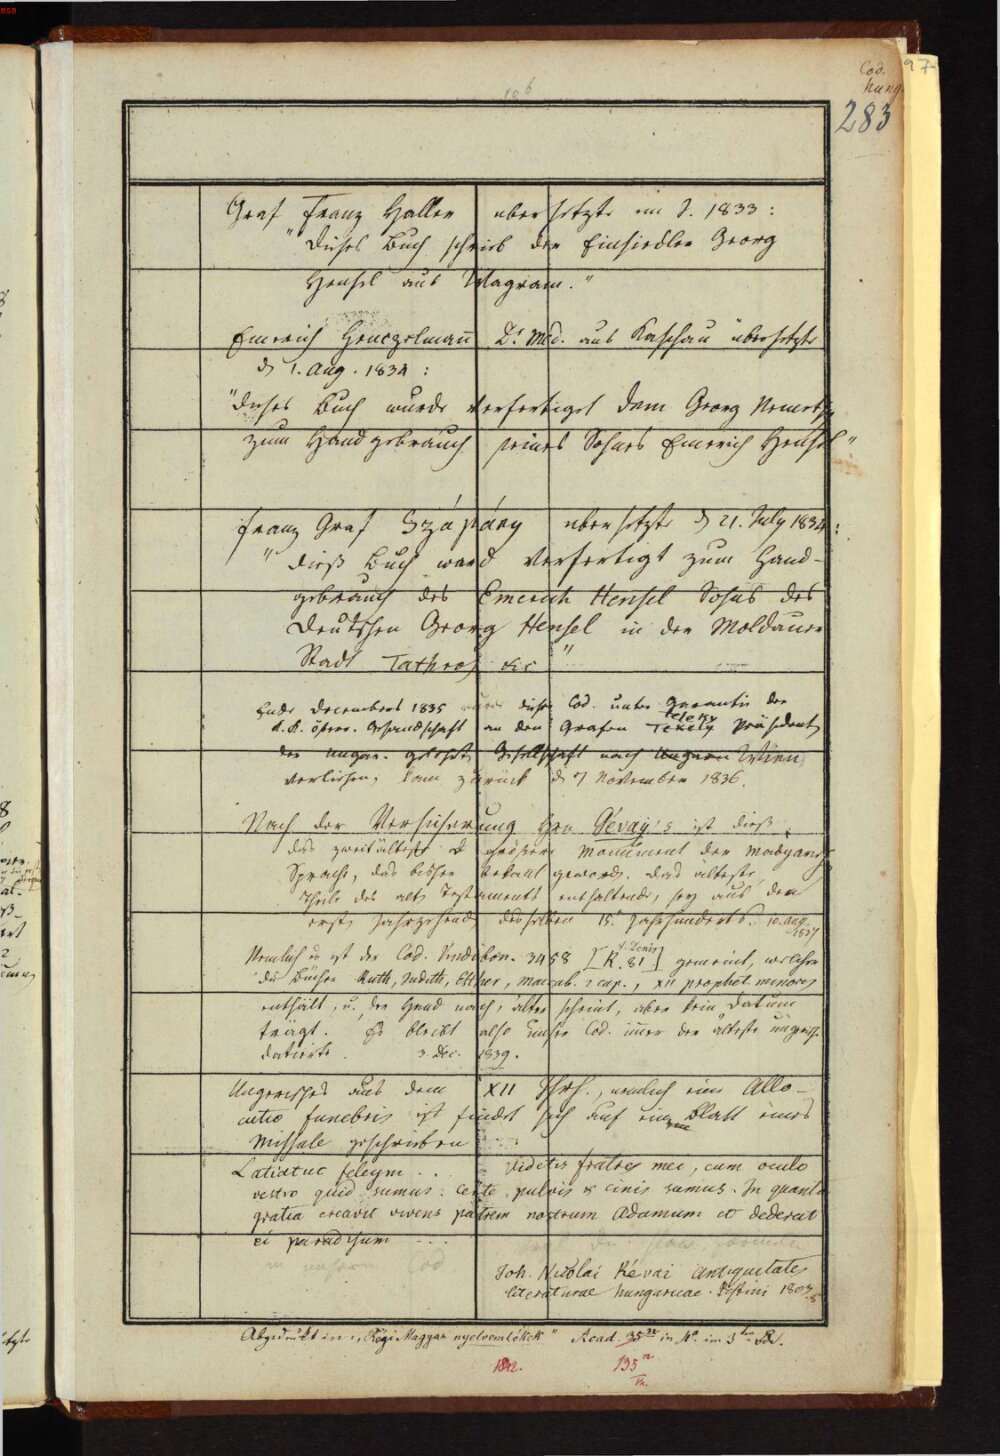 106
Cod.
hung.
283
97
Graf Franz Haller übersetzte im J. 1833:
"Dieses Buch schrieb der Einsiedler Georg
Hensel aus Wagram."
Emerich Henczelmann Dr Med. aus Kaschau übersetzte
d 1. Aug. 1834:
"Dieses Buch wurde verfertiget dem Georg Nemeth
zum Handgebrauch seines Sohnes Emerich Hensel"
Franz Graf Szápáry übersetzte d 21. July 1834:
"dieß Buch ward verfertigt zum Hand-
gebrauch des Emerich Hensel Sohns des
Deutschen Georg Hensel in der Moldauer
Stadt Tathros etc"
Ende Decembers 1835 wurde dieser Cod. unter Garantie der
K. K. österr. Gesandschaft an den Grafen Tekely Teleky Präsident
der ungar. gelehrt. Gesellschaft nach Ungarn Wien
verliehen, kam zurück d 7 November 1836.
Nach der Versicherung Hrn Gévay's ist dieß
das zweitälteste & größere Monument der madyarisch
Sprache, das bisher bekannt geworden. Das älteste,
Theile des alt. Testaments enthaltend, sey aus dem
ersten Jahrzehend desselben 15. Jahrhunderts. 10. Aug.
1837
Nemlich es ist der Cod. Vindobon. 3458 [K. 81] + Denis gemeint, welcher
die Bücher Ruth, Judith, Esther, Maccab. 2 cap., XII prophet. minores
enthält, u. der Hand nach, älter scheint, aber kein Datum
trägt. Es bleibt also unser Cod. immer der älteste ungrisch
datirte. 3. Dec. 1839.
Ungerisches aus dem XII Jhrh., nemlich eine Allo-
cutio funebris ist findet sich auf einem Blatt eines
Missale geschrieben
Latiatuc feleym ... Videtis fratres mei, cum oculo
vestro quid sumus: certe, pulvis & cinis sumus. In quanta
gratia creavit vivens patrem nostrum Adamum et dederat
ei paradisum ...
in unserm Cod
Joh. Nicolai Révai Antiquitates
literaturae hungaricae. Pestini 1803. 8°
Abgedruckt in: "Régi Magyar nyelvemlékek" Acad. 35 in 4° im 3 Bd.
1842.
135